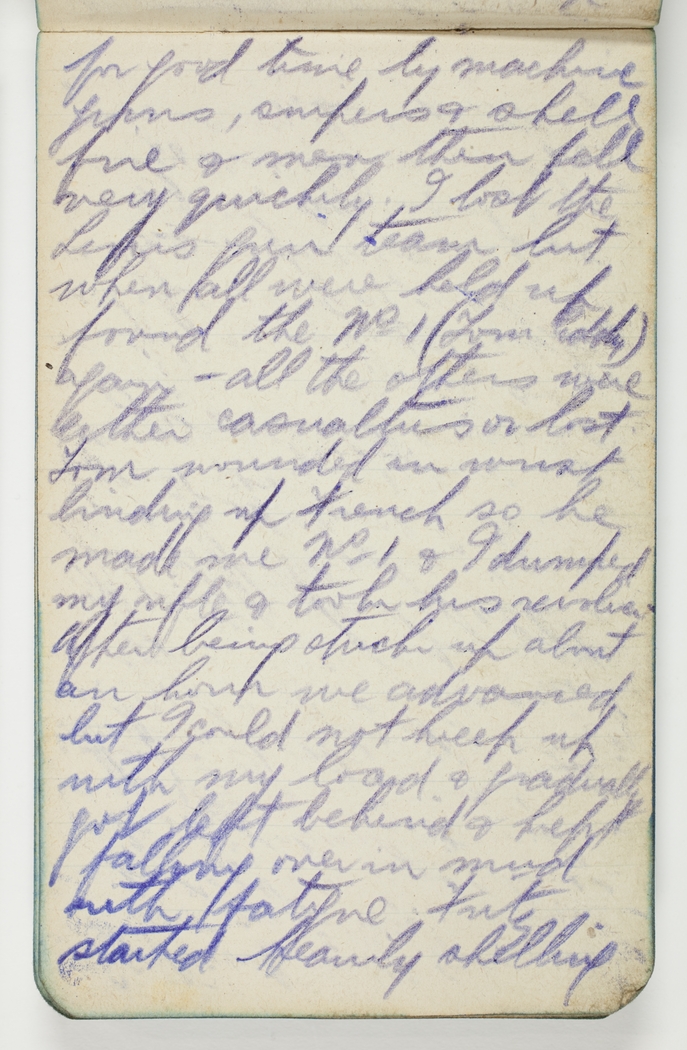 for good time by machine
guns, snipers & shell
fire & men then fell
very quickly. I lost the
Lewis gun team but
when all were held up
found the No 1 (Tom Eddy)
again - all the others were
either casualties or lost.
Tom wounded in wrist
binding up trench so he
made me No 1 & I dumped
my rifle & took his revolver
After being stuck up about
an hour we advanced
but I could not keep up
with my load & gradually
got left behind & kept
falling over in mud
with fatigue. Fritz
started heavily shelling